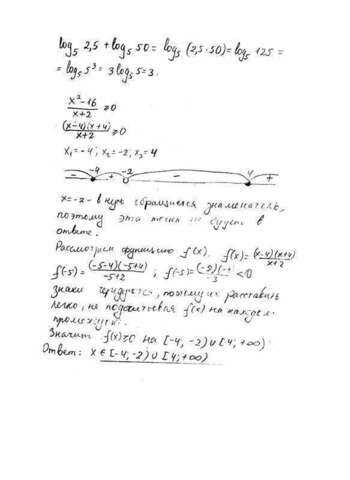 log₅ 2,5 + log₅ 50 = log₅ (2,5·50) = log₅ 125 =
= log₅ 5³ = 3 log₅ 5 = 3.
x²-16 / x+2 ≥ 0
(x-4)(x+4) / x+2 ≥ 0
x₁ = -4; x₂ = -2; x₃ = 4
- -4 + -2 - 4 +
x = -2 - в нуль обращается знаменатель,
поэтому эта точка не будет в
ответе.
Рассмотрим функцию f(x). f(x) = (x-4)(x+4) / x+2
f(-5) = (-5-4)(-5+4) / -5+2 ; f(-5) = (-9)(-1 / -3 < 0
знаки чередуются, поэтому их расставить
легко, не подсчитывая f(x) на каждом
промежутке.
Значит f(x) ≥ 0 на [-4, -2) ∪ [4; +∞)
Ответ: x ∈ [-4, -2) ∪ [4; +∞)